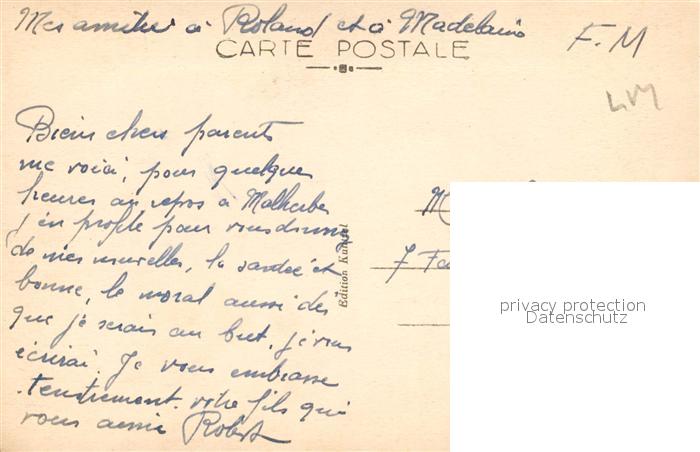 Mes amitiés à Roland et à Madelaine
CARTE POSTALE
F. M
LVM
Biens chers parents
me voici, pour quelque
heures au repos à Malherbe
j'en profite pour vous donner
de mes nouvelles, la santée et
bonne, le moral aussi dés
que je serais au but, j'vous
écrirai. Je vous embrasse
tendrement. votre fils qui
vous aime Robert
Edition
M
7 Fa
privacy protection
Datenschutz